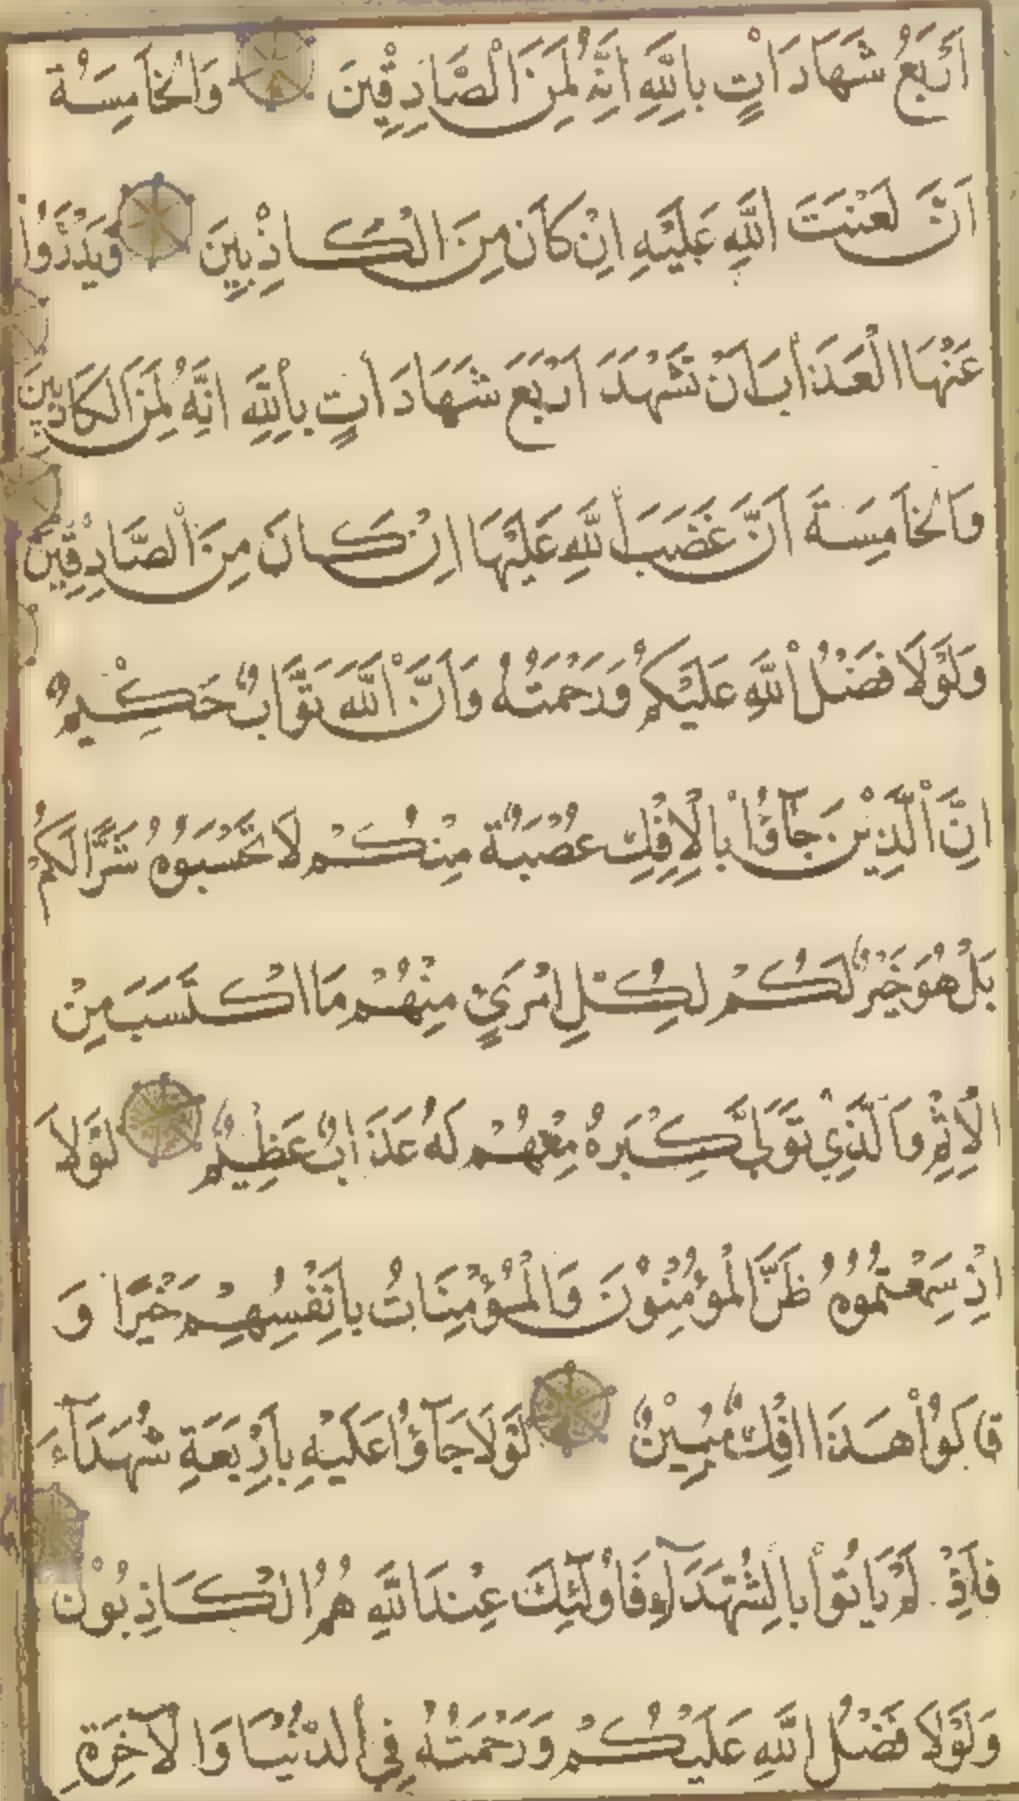 اَرْبَعُ شَهَادَاتٍ بِاللّٰهِ اِنَّهُ لَمِنَ الصَّادِقِينَ وَالْخَامِسَةُ
اَنَّ لَعْنَتَ اللّٰهِ عَلَيْهِ اِنْ كَانَ مِنَ الْكَاذِبِينَ وَيَدْرَؤُا
عَنْهَا الْعَذَابَ اَنْ تَشْهَدَ اَرْبَعَ شَهَادَاتٍ بِاللّٰهِ اِنَّهُ لَمِنَ الْكَاذِبِينَ
وَالْخَامِسَةَ اَنَّ غَضَبَ اللّٰهِ عَلَيْهَا اِنْ كَانَ مِنَ الصَّادِقِينَ
وَلَوْلَا فَضْلُ اللّٰهِ عَلَيْكُمْ وَرَحْمَتُهُ وَاَنَّ اللّٰهَ تَوَّابٌ حَكِيمٌ
اِنَّ الَّذِينَ جَآؤُا بِالْاِفْكِ عُصْبَةٌ مِنْكُمْ لَا تَحْسَبُوهُ شَرًّا لَكُمْ
بَلْ هُوَ خَيْرٌ لَكُمْ لِكُلِّ امْرِئٍ مِنْهُمْ مَا اكْتَسَبَ مِنَ
الْاِثْمِ وَالَّذِي تَوَلَّى كِبْرَهُ مِنْهُمْ لَهُ عَذَابٌ عَظِيمٌ لَوْلَا
اِذْ سَمِعْتُمُوهُ ظَنَّ الْمُؤْمِنُونَ وَالْمُؤْمِنَاتُ بِاَنْفُسِهِمْ خَيْرًا وَ
قَالُوا هَذَا اِفْكٌ مُبِينٌ لَوْلَا جَآؤُا عَلَيْهِ بِاَرْبَعَةِ شُهَدَآءَ
فَاِذْ لَمْ يَاْتُوا بِالشُّهَدَآءِ فَاُولَئِكَ عِنْدَ اللّٰهِ هُمُ الْكَاذِبُونَ
وَلَوْلَا فَضْلُ اللّٰهِ عَلَيْكُمْ وَرَحْمَتُهُ فِي الدُّنْيَا وَالْآخِرَةِ